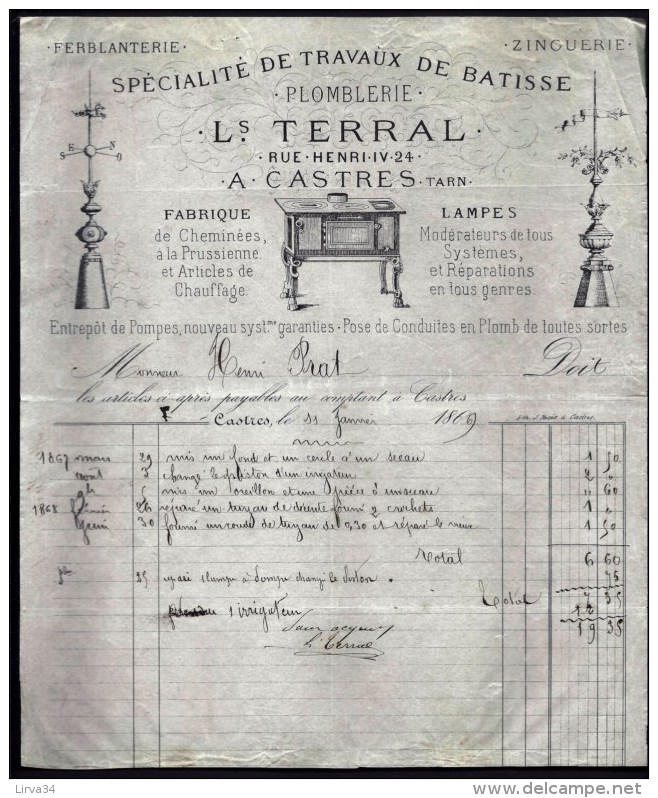 ·FERBLANTERIE·
·ZINGUERIE·
SPÉCIALITÉ DE TRAVAUX DE BATISSE
·PLOMBLERIE·
·Ls TERRAL·
·RUE·HENRI·IV·24·
·A CASTRES·TARN·
FABRIQUE
de Cheminées,
à la Prussienne
et Articles de
Chauffage.
LAMPES
Modérateurs de tous
Systèmes,
et Réparations
en tous genres.
Entrepôt de Pompes, nouveau systme garanties·Pose de Conduites en Plomb de toutes sortes
Monsieur Henri Prat Doit
les articles ci-après payables au comptant à Castres
Castres, le 31 Janvier 1869
1867 mars 29 mis un fond et un cercle à un seau 1 50
août 3 changé le d'un 2 "
mis un oreillon et une pièce à un seau " 60
1868 26 réparé un tuyau de décente fourni 2 crochets 1 "
30 fourni un coude de tuyau de 0,30 et réparé le 1 50
Total 6 60
25 75
Total 7 35
1 irrigateur 12
19 35
Pour acquit
L. Terral
Lirva34
delcampe.net